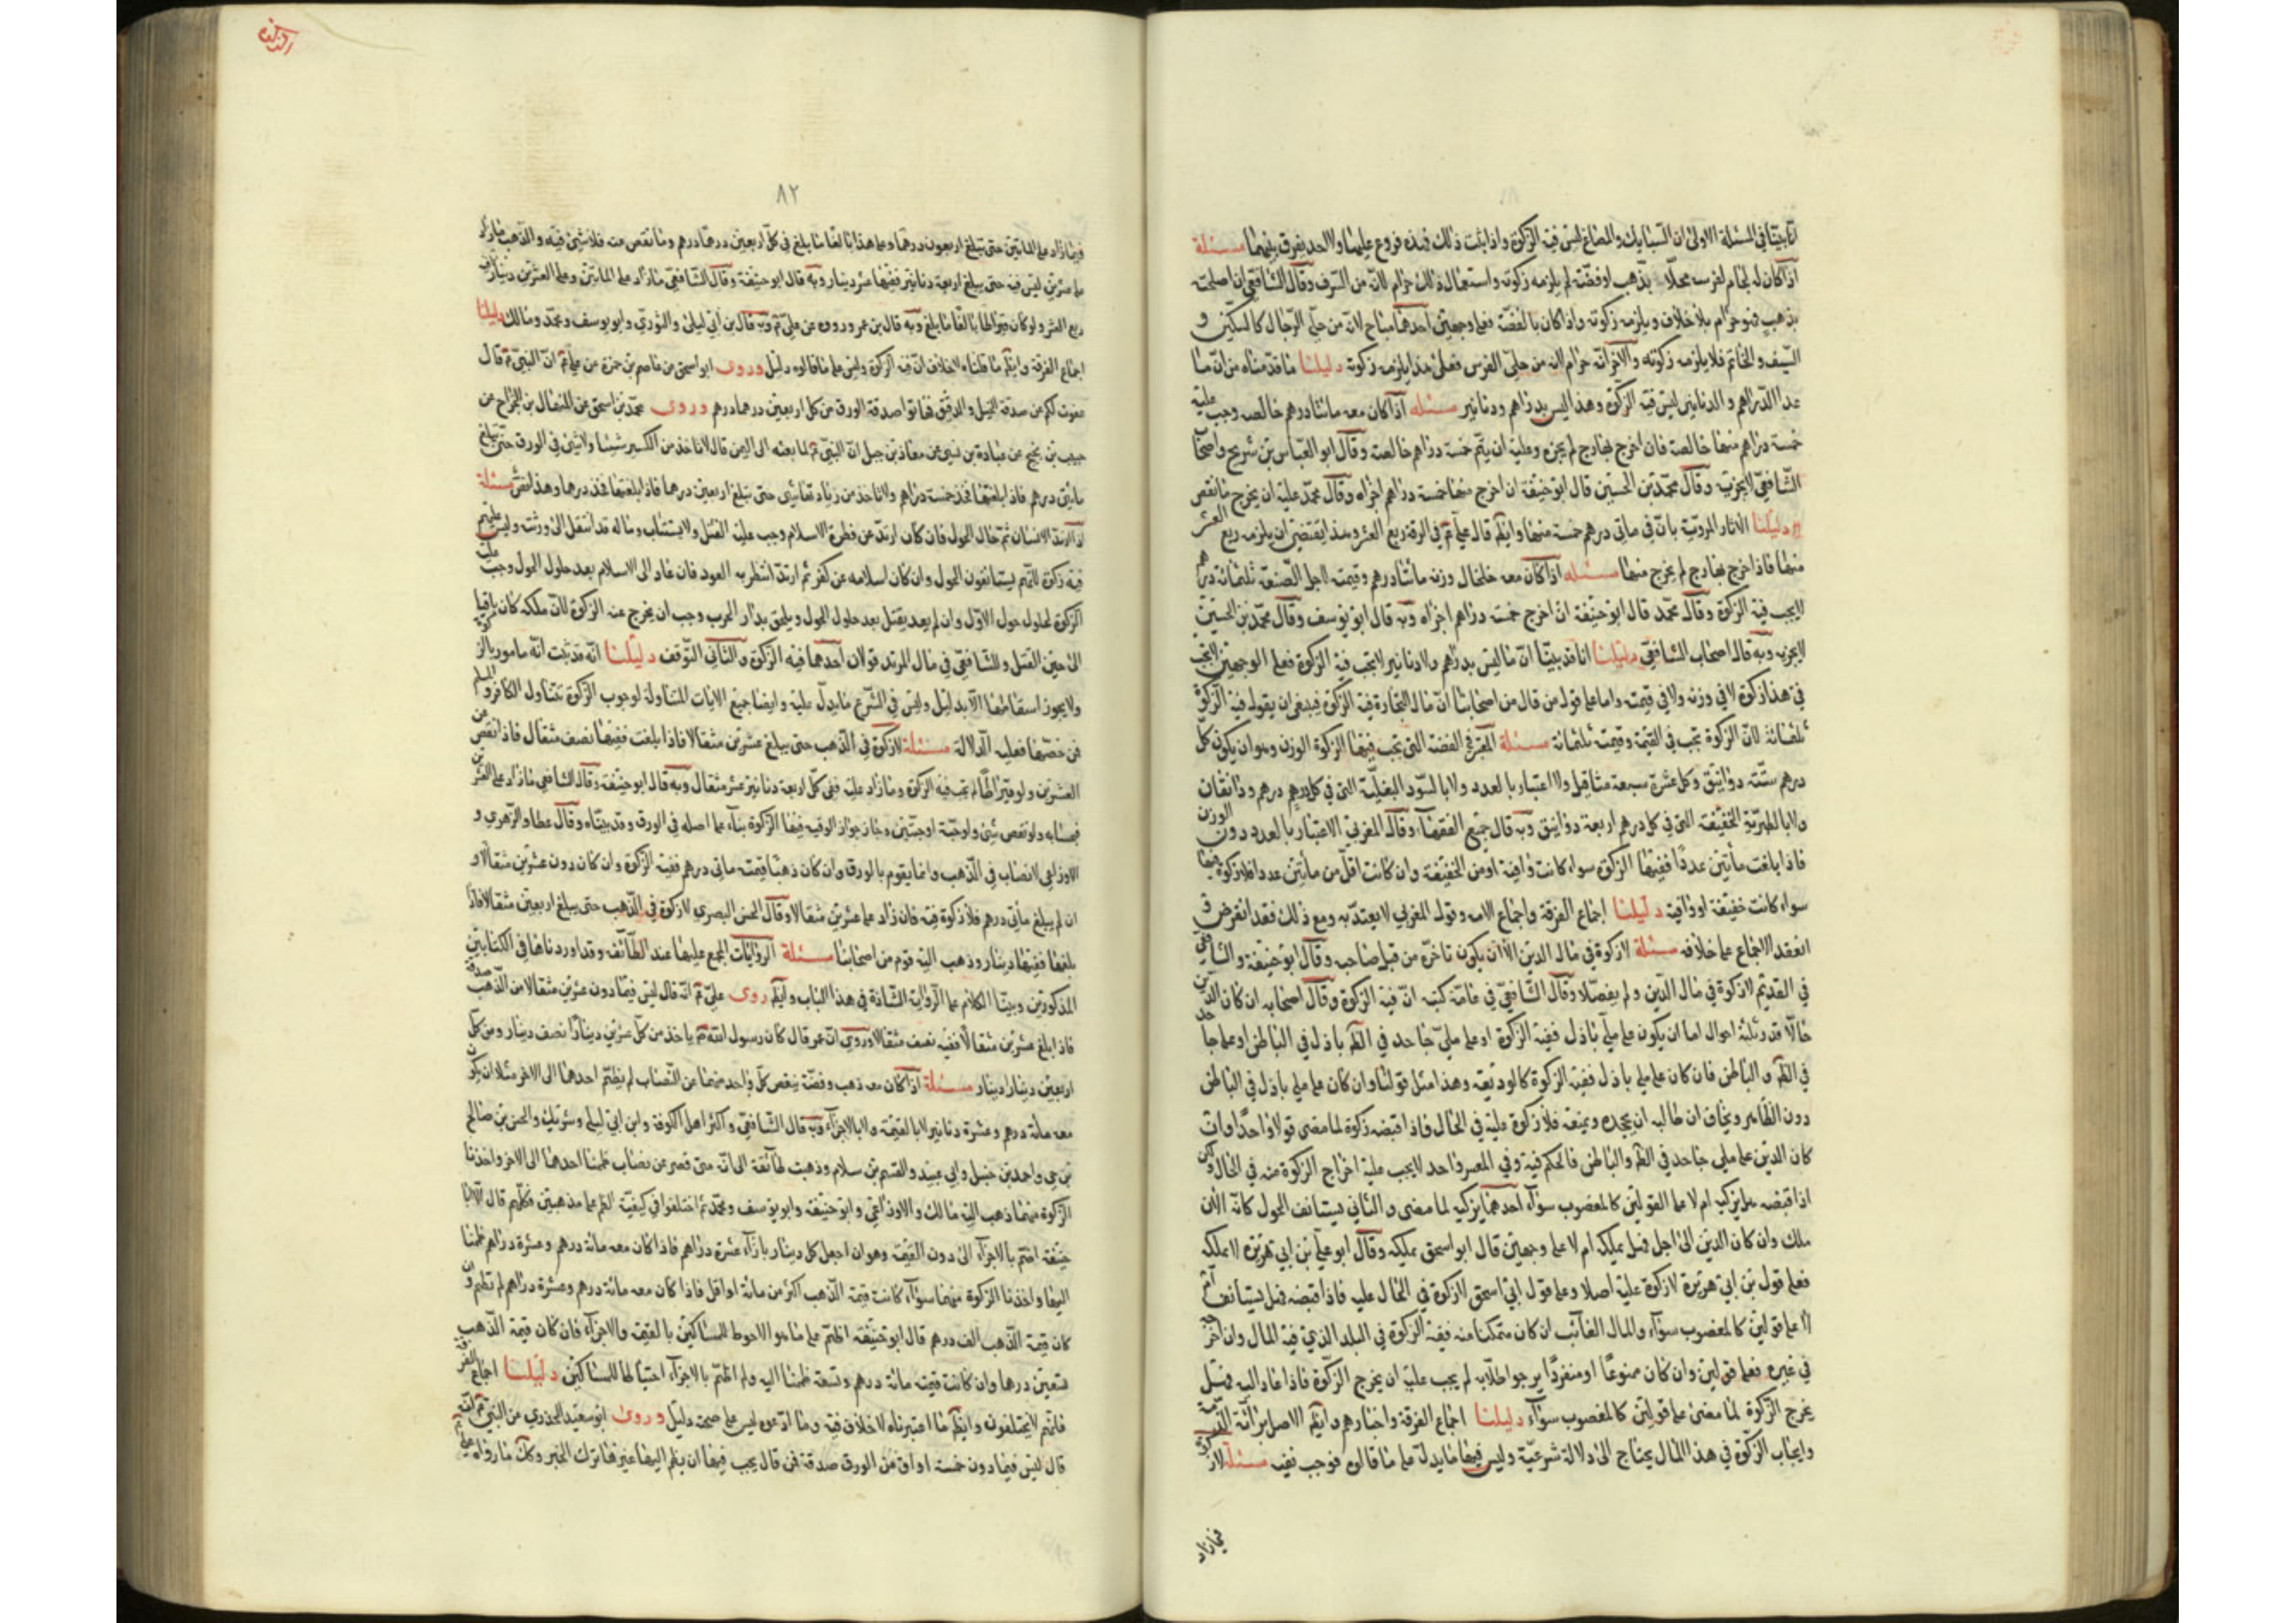 انا بيتنا في المسئلة الاولى ان السبايك والمصاغ ليس فيه الزكوة واذا ثبت ذلك فهذه فروع عليها ولا احد يفرق بينهما مسئلة
اذا كان له لجام لفرسه محلا بذهب او فضة لم يلزمه زكوته واستعمال ذلك حرام لانه من السرف وقال الشافعي ان اصلحت
بذهب فهو حرام بلا خلاف ويلزمه زكوته واذا كان بالفضة فعلى وجهين احدهما مباح لانه من حلي الرجال كالسكين و
السيف والخاتم فلا يلزمه زكوته والاخر انه حرام لانه من حلي الفرس فعلى هذا يلزمه زكوة دليلنا ما قدمناه من ان ما
عدا الدراهم والدنانير ليس فيه الزكوة وهذا ليس بدراهم ودنانير مسئله اذا كان معه مائتا درهم خالصه وجب عليه
خمسة دراهم منها خالصة فان اخرج بهارج لم يجزه وعليه ان يتم خمسة دراهم خالصة وقال ابو العباس بن شريح واصحا
الشافعي لا يجزيه وقال محمد بن الحسين قال ابو حنيفة ان اخرج منها خمسة دراهم اجزاه وقال محمد عليه ان يخرج ما نقص
دليلنا الاثار المروية بان في مائتي درهم خمسة منها وايضا قال عليه م في الرقة ربع العشر وهذا يقتضي ان يلزمه ربع العشر
منها فاذا اخرج بهارج لم يخرج منها مسئله اذا كان معه خلخال وزنه مائتا درهم وقيمته لاجل الصنعة ثلثمائة درهم
لا يجب فيه الزكوة وقال محمد قال ابو حنيفة ان اخرج خمسة دراهم اجزاه وبه قال ابو يوسف وقال محمد بن الحسين
لا يجزيه وبه قال اصحاب الشافعي دليلنا انا قد بيتنا ان ما ليس بدراهم ولا دنانير لا تجب فيه الزكوة فعلى الوجهين لا تجب
في هذا زكوة لا في وزنه ولا في قيمته واما على قول من قال من اصحابنا ان مال التجارة فيه الزكوة فينبغي ان يقول فيه الزكوة
ثلثمائة لان الزكوة تجب في القيمة وقيمته ثلثمائة مسئلة المعتبر في الفضة التي تجب فيها الزكوة الوزن وهو ان يكون كل
درهم ستة دوانيق وكل عشرة سبعة مثاقيل ولا اعتبار بالعدد ولا بالسود البغلية التي في كل درهم درهم ودانقان
ولا بالطبرية الخفيفة التي في كل درهم اربعة دوانيق وبه قال جميع الفقهاء وقال المغربي الاعتبار بالعدد دون الوزن
فاذا بلغت مأتين عددا ففيها الزكوة سواء كانت وافية او من الخفيفة وان كانت اقل من مأتين عددا فلا زكوة فيها
سواء كانت خفيفة او وافية دليلنا اجماع الفرقة واجماع الامة وقول المغربي لا يعتد به ومع ذلك فقد انقرض و
انعقد الاجماع على خلافه مسئلة لا زكوة في مال الدين الا ان يكون تاخره من قبل صاحبه وقال ابو حنيفة والشافعي
في القديم لا زكوة في مال الدين ولم يفصلا وقال الشافعي في عامة كتبه ان فيه الزكوة وقال اصحابه ان كان الدين
حالا قد وثلثة احوال اما ان يكون على ملي باذل ففيه الزكوة او على ملي جاحد في الظاهر باذل في الباطن او على جاحد
في الظاهر والباطن فان كان على ملي باذل ففيه الزكوة كالوديعة وهذا مثل قولنا وان كان على ملي باذل في الباطن
دون الظاهر ويخاف ان طالبه ان يجحده ويمنعه فلا زكوة عليه في الحال فاذا قبضه زكوة لما مضى قولا واحدا وان
كان الدين على ملي جاحد في الظاهر والباطن فالحكم فيه وفي المعسر واحد لا يجب عليه اخراج الزكوة منه في الحال ولكن
اذا قبضه هل يزكيه ام لا على القولين كالمغصوب سواء احدهما يزكيه لما مضى والثاني يستانف الحول كانه الان
ملك وان كان الدين الى اجل فهل يملكه ام لا على وجهين قال ابو اسحق يملكه وقال ابو علي بن ابي هريرة لا يملكه
فعلى قول بن ابي هريرة لا زكوة عليه اصلا وعلى قول ابي اسحق لا زكوة في الحال عليه فاذا قبضه فهل يستانف ام
لا على قولين كالمغصوب سواء والمال الغائب ان كان متمكنا منه ففيه الزكوة في البلد الذي فيه المال وان اخرجه
في غيره فعلى قولين وان كان ممنوعا او منفردا يرجو طلابه لم يجب عليه ان يخرج الزكوة فاذا عاد اليه فهل
يخرج الزكوة لما مضى على قولين كالمغصوب سواء دليلنا اجماع الفرقة واخبارهم وايضا الاصل برائة الذمة
وايجاب الزكوة في هذا المال يحتاج الى دلالة شرعية وليس فيها ما يدل على ما قالوه فوجب نفيه مسئلة لا زكوة
فيما زاد
٨٢
فيما زاد على المأتين حتى يبلغ اربعون درهما وعلى هذا بالغا ما بلغ في كل اربعين درهما درهم وما نقص عنه فلا شيئ فيه والذهب ما زاد
على عشرين ليس فيه حتى يبلغ اربعة دنانير ففيها عشر دينار وبه قال ابو حنيفة وقال الشافعي ما زاد على المائتين وعلى العشرين دينارا ففيه
ربع العشر ولو كان قيراطا بالغا ما بلغ وبه قال بن عمر وروى عن علي م وبه قال بن ابي ليلى والثوري وابو يوسف ومحمد ومالك دليلنا
اجماع الفرقة وايضا ما قلناه لا خلاف ان فيه الزكوة وليس على ما قالوه دليل وروى ابو اسحق عن عاصم بن حمزة عن علي م ان النبي م قال
عفوت لكم عن صدقة الخيل والرقيق فهاتوا صدقة الورق من كل اربعين درهما درهم وروى محمد بن اسحق عن المنهال بن الجراح عن
حبيب بن نجيح عن عبادة بن نسي عن معاذ بن جبل ان النبي م لما بعثه الى اليمن قال لا تاخذ من الكسر شيئا ولا شيئ في الورق حتى يبلغ
مائتي درهم فاذا بلغتها فخذ خمسة دراهم ولا تاخذ من زيادتها شيئا حتى تبلغ اربعين درهما فاذا بلغتها فخذ درهما وهذا نص مسئلة
اذا ارتد الانسان ثم حال الحول فان كان ارتد عن فطرة الاسلام وجب عليه القتل ولا يستتاب وماله قد انتقل الى ورثته وليس عليهم
فيه زكوة لانهم يستانفون الحول وان كان اسلامه عن كفر ثم ارتد انتظر به العود فان عاد الى الاسلام بعد حلول الحول وجب عليه
الزكوة لحلول حول الاول وان لم يعد يقتل بعد حلول الحول ويلحق بدار الحرب وجب ان يخرج عنه الزكوة لان ملكه كان باقيا
الى حين القتل وللشافعي في مال المرتد قولان احدهما فيه الزكوة والثاني التوقف دليلنا انه قد ثبت انه مامور بالزكوة
ولا يجوز اسقاطها الا بدليل وليس في الشرع ما يدل عليه وايضا جميع الايات المتناولة لوجوب الزكوة تتناول الكافر والمسلم
فمن خصها فعليه الدلالة مسئلة لا زكوة في الذهب حتى يبلغ عشرين مثقالا فاذا بلغت ففيها نصف مثقال فاذا نقص عن
العشرين ولو قيراطا لم تجب فيه الزكوة وما زاد عليه ففي كل اربعة دنانير عشر مثقال وبه قال ابو حنيفة وقال الشافعي ما زاد على العشرين
فبحسابه ولو نقص شيئ ولو حبة او حبتين وجاز جواز الوافيه ففيها الزكوة بناء على اصله في الورق وقد بيتناه وقال عطا والزهري و
الاوزاعي لا نصاب في الذهب وانما يقوم بالورق وان كان ذهبا قيمته مائتي درهم ففيه الزكوة وان كان دون عشرين مثقالا و
ان لم يبلغ مأتي درهم فلا زكوة فيه فان زاد على عشرين مثقالا وقال الحسن البصري لا زكوة في الذهب حتى يبلغ اربعين مثقالا فاذا
بلغها ففيها دينار وذهب اليه قوم من اصحابنا مسئلة الروايات المجمع عليها عند الطائفة وقد اوردناها في الكتابين
المذكورين وبيتنا الكلام على الرواية الشاذة في هذا الباب وايضا روى علي م انه قال ليس فيما دون عشرين مثقالا من الذهب صدقة
فاذا بلغ عشرين مثقالا ففيه نصف مثقالا وروي ان عمر قال كان رسول الله م ياخذ من كل عشرين دينارا نصف دينار ومن كل
اربعين دينارا دينار مسئلة اذا كان معه ذهب وفضة ينقص كل واحد منهما عن النصاب لم يضم احدهما الى الاخر مثلا ان يكون
معه مائة درهم وعشرة دنانير لا بالقيمة ولا بالاجزاء وبه قال الشافعي واكثر اهل الكوفة وابن ابي ليلى وشريك والحسن بن صالح
بن حي واحمد بن حنبل وابي عبيد والقسم بن سلام وذهبت طائفة الى انه متى قصر عن نصاب ضممنا احدهما الى الاخر واخذنا
الزكوة منهما ذهب اليه مالك والاوزاعي وابو حنيفة وابو يوسف ومحمد ثم اختلفوا في كيفية الضم على مذهبين فكلهم قال الا ابا
حنيفة اضم بالاجزاء الى دون القيمة وهو ان اجعل كل دينار بازاء عشرة دراهم فاذا كان معه مائة درهم وعشرة دراهم ضممنا
اليها واخذنا الزكوة منهما سواء كانت قيمة الذهب اكثر من مائة او اقل فاذا كان معه مائة درهم وعشرة دراهم لم تضم وان
كان قيمة الذهب الف درهم قال ابو حنيفة اضم على ما هو الاحوط للمساكين بالقيمة والاجزاء فان كان قيمة الذهب
تسعين درهما وان كانت قيمته مائة درهم وتسعة ضممنا اليه ولم اضم بالاجزاء احتياطا للمساكين دليلنا اجماع الفرقة
فانهم لا يختلفون وايضا ما اعتبرناه لا خلاف فيه وما ادعوه ليس على صحته دليل وروى ابو سعيد الخدري عن النبي م انه
قال ليس فيما دون خمسة اواق من الورق صدقة فمن قال يجب فيها ان يضم اليها غيرها ترك الخبر وكك ما رواه علي م